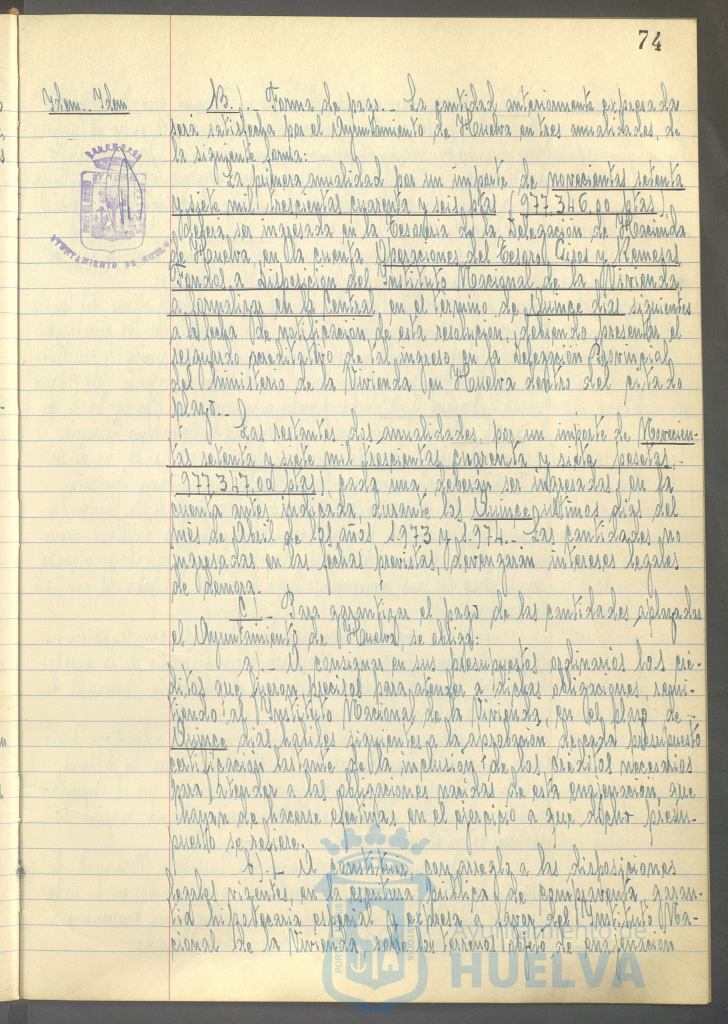 74
Idem.. Idem
B).- Forma de pago.- La cantidad anteriormente expresada
será satisfecha por el Ayuntamiento de Huelva en tres anualidades, de
la siguiente forma:
La primera anualidad por un importe de novecientas setenta
y siete mil trescientas cuarenta y seis ptas (977.346,00 ptas)
deberá ser ingresada en la Tesorería de la Delegación de Hacienda
de Huelva, en la cuenta Operaciones del Tesoro, Giros y Remesas
Fondos a disposición del Instituto Nacional de la Vivienda,
a formalizar en la Central, en el término de Quince días siguientes
a la fecha de notificación de esta resolución, debiendo presentar el
resguardo acreditativo de tal ingreso en la Delegación Provincial
del Ministerio de la Vivienda en Huelva dentro del citado
plazo..-
Las restantes dos anualidades, por un importe de Novecien-
tas setenta y siete mil trescientas cuarenta y siete pesetas,-
(977.347,00 ptas), cada una deberán ser ingresadas, en la
cuenta antes indicada, durante los Quince últimos días del
mes de Abril de los años 1.973 y 1.974.- Las cantidades no
ingresadas en las fechas previstas, devengarán intereses legales
de demora.
C).- Para garantizar el pago de las cantidades aplazadas
el Ayuntamiento de Huelva, se obliga:
a).- A consignar en sus presupuestos ordinarios los cré-
ditos que fueron precisos para atender a dichas obligaciones, remi-
tiendo al Instituto Nacional de la Vivienda, en el plazo de
Quince días hábiles siguientes a la aprobación de cada presupuesto
certificación bastante de la inclusión de los créditos necesarios
para atender a las obligaciones nacidas de esta enajenación que
hayan de hacerse efectivas en el ejercicio a que dicho presu-
puesto se refiere.
b).- A constituir, con arreglo a las disposiciones
legales vigentes, en la escritura pública de compraventa, garan-
tía hipotecaria especial y expresa a favor del Instituto Na-
cional de la Vivienda, sobre los terrenos objeto de enajenación
AYUNTAMIENTO DE HUELVA
Ayuntamiento de
HUELVA